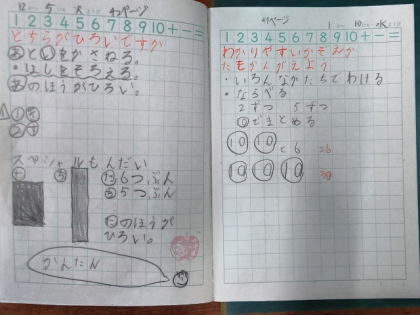 12 5 火 42ページ
1 2 3 4 5 6 7 8 9 10 + - =
どちらがひろいですか
あといをかさねる。
・はしをそろえる。
あのほうがひろい。
スペシャルもんだい
た う
た6つぶん
う5つぶん
たのほうが
ひろい。
かんたん
41ページ
1 10 水
1 2 3 4 5 6 7 8 9 10 + - =
わかりやすいかぞえか
たをかんがえよう
・いろんなかたちでわける
・ならべる
2ずつ 5ずつ
10でまとめる
10 10 と6 26
10 10 10 30